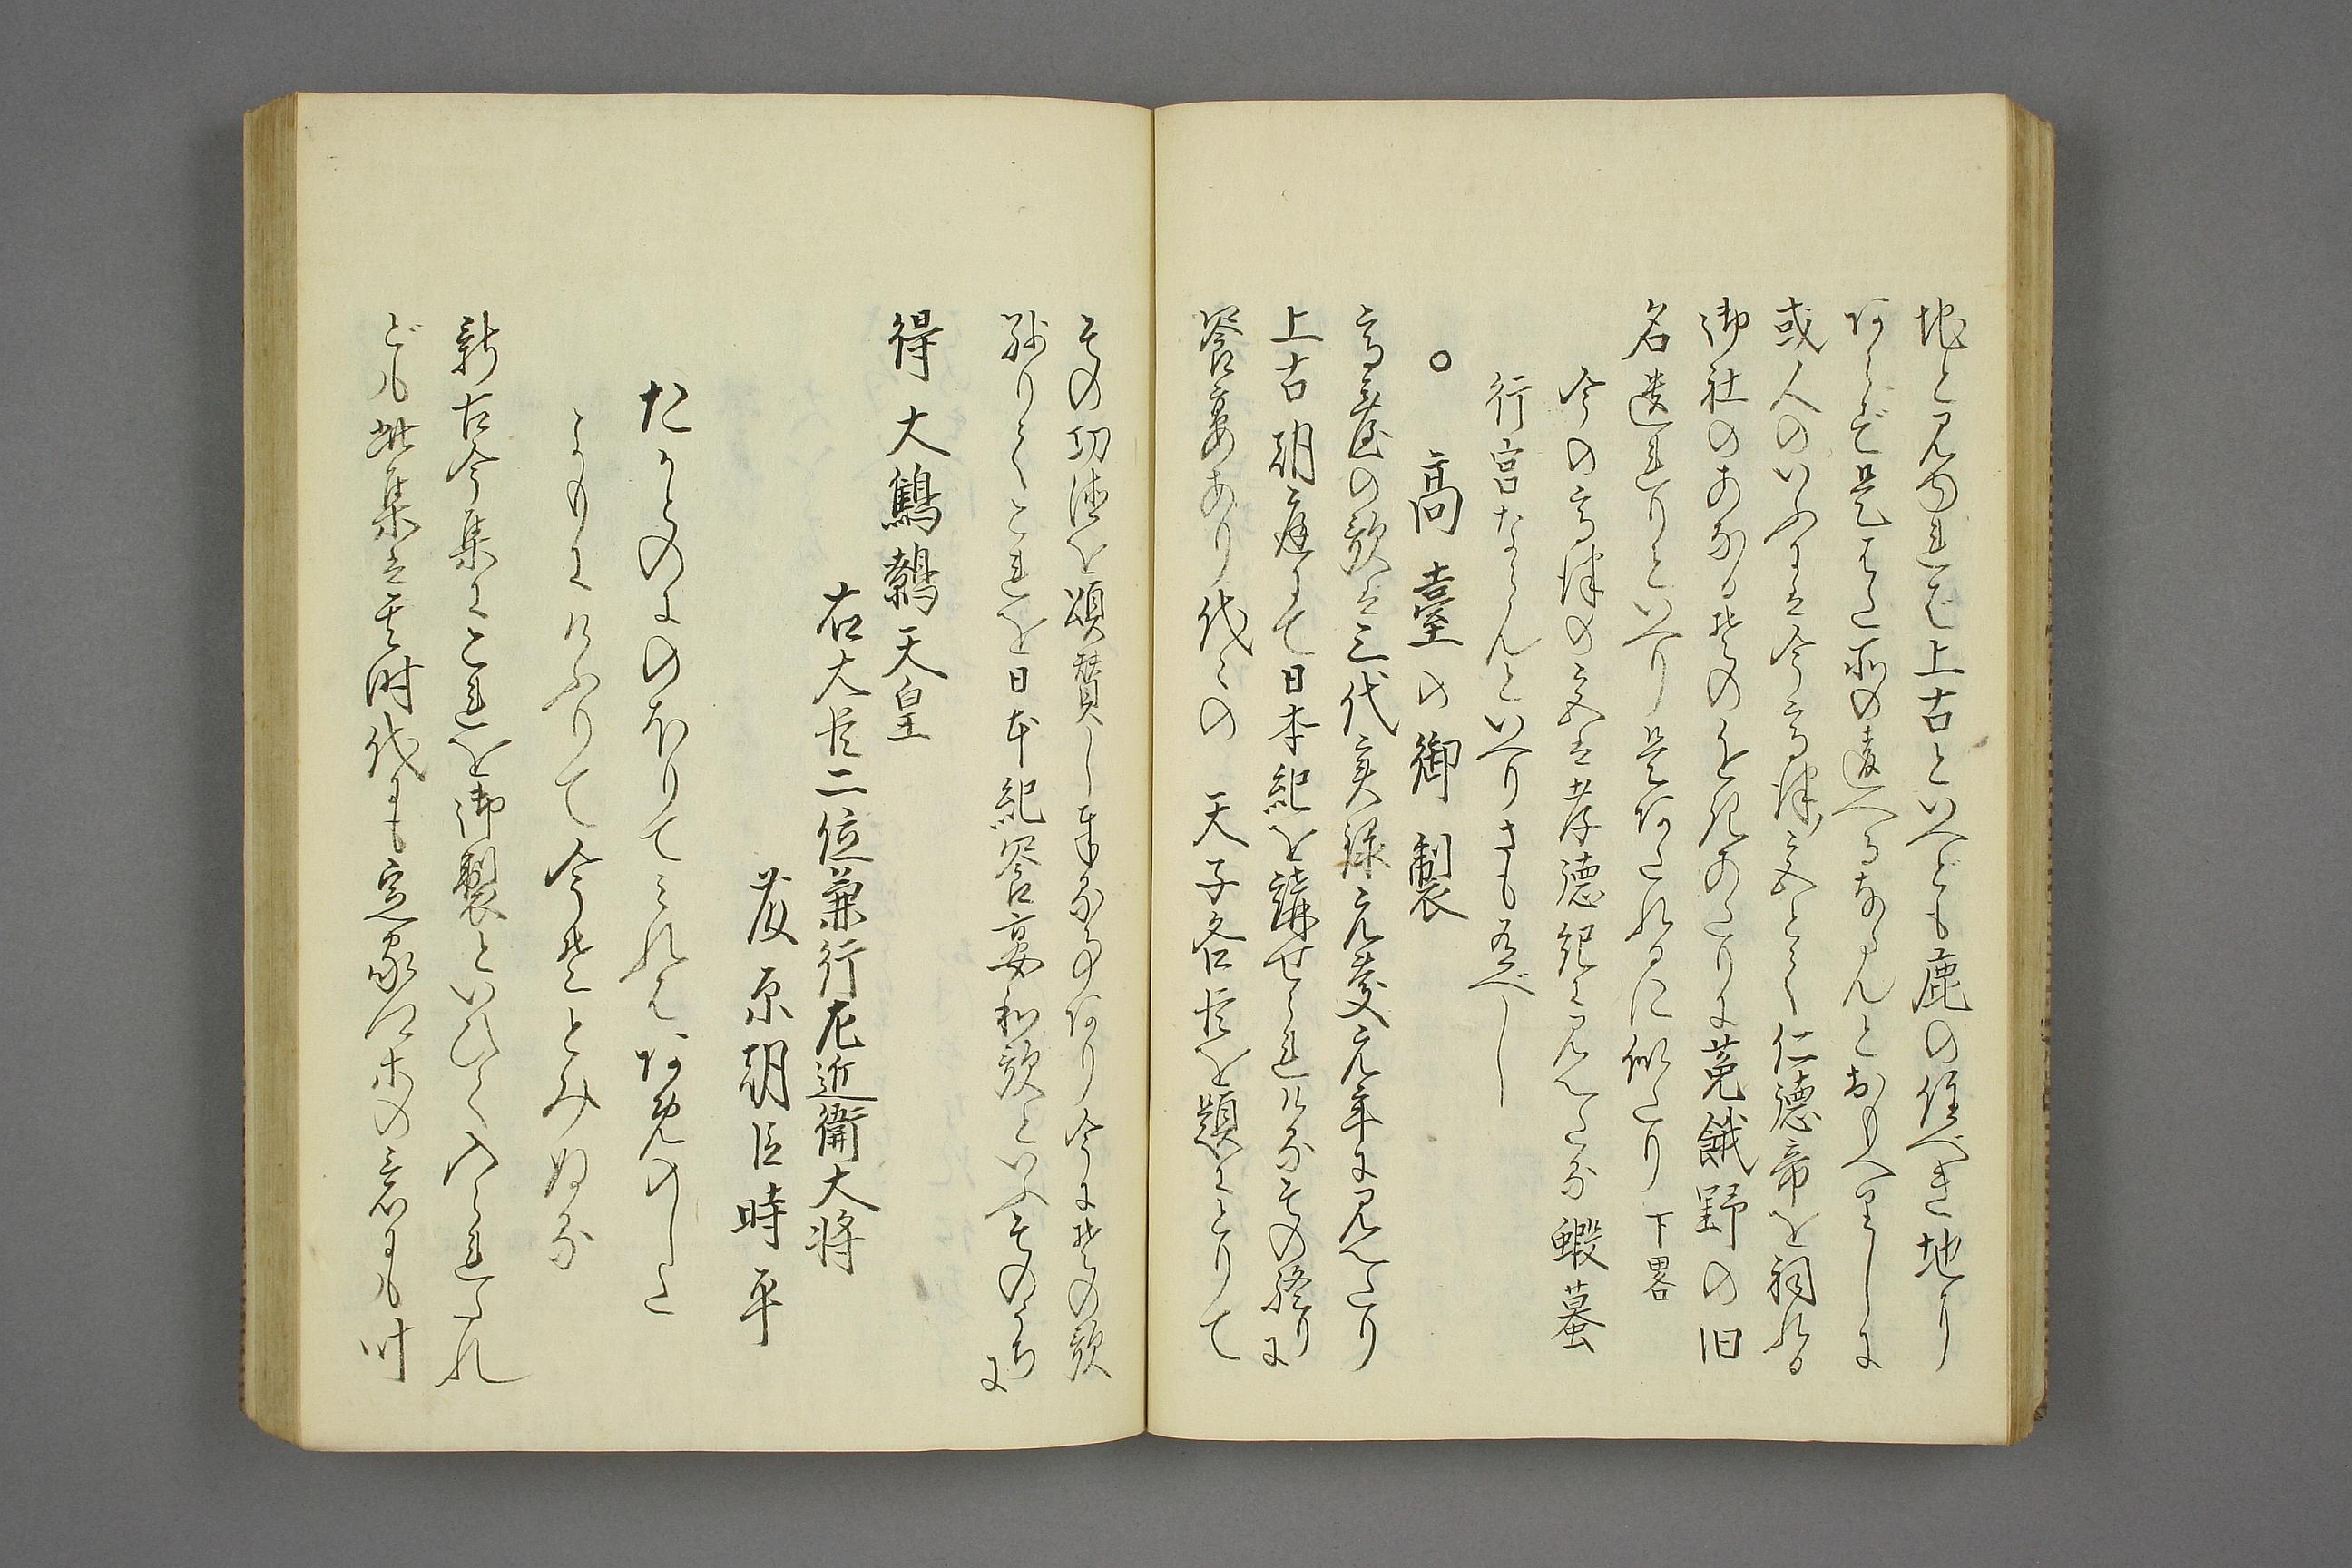 地と見ゆれば上古といへども鹿の住べき地に
あらず是また所の違へるならんとおもへりしに
或人のいふには今高津の宮とて仁徳帝を祠れる
御社のあなる其のを記あたりに菟餓野の旧
名遺れりといへり是あたれるに似たり 下畧
今の高津の宮は孝徳紀に見へたる蝦蟇
行宮ならんといへりさも有べし
○ 高臺の御製
高臺の歌は三代実録元慶元年に見へたり
上古朝庭にて日本紀を講せられける其の終りに
饗宴あり代々の 天子各臣を題にとりて
その功徳を頌賛し奉る事あり今に其の歌
残りてこれを日本紀饗宴和歌といふそのうちに
得 大鷦鷯天皇
右大臣二位兼行左近衛大将
藤原朝臣時平
たかとのにのほりてみれはあめのした
よもにけふりて今そとみぬる
新古今集にこれを御製といひて入られたれ
ども此集は其時代にも定家卿等の意にも叶